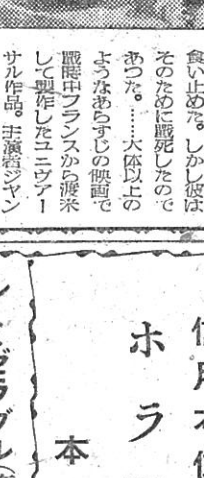 食い止めた。しかし彼は
そのために戰死したので
あつた。……大体以上の
ようなあらすじの映画で
戰時中フランスから渡米
して製作したユニヴアー
サル作品。主演者ジヤン
ホラ
本